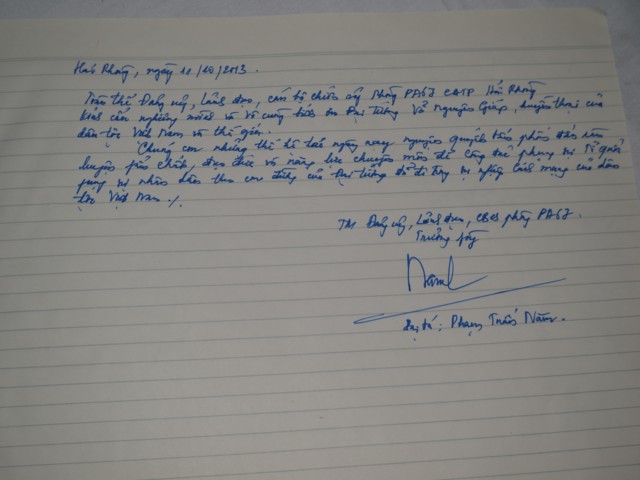 Hải Phòng, ngày 11/10/2013.
Toàn thể Đảng uỷ, Lãnh đạo, cán bộ chiến sỹ Phòng PA67 CATP Hải Phòng
kính cẩn nghiêng mình và vô cùng biết ơn Đại tướng Võ Nguyên Giáp, huyền thoại của
dân tộc Việt Nam và thế giới.
Chúng con những thế hệ trẻ ngày nay nguyện quyết tâm phấn đấu rèn
luyện phẩm chất, đạo đức và năng lực chuyên môn để cống hiến phụng sự Tổ quốc
phụng sự nhân dân theo con đường của Đại tướng đã đi hay sự nghiệp cách mạng của dân
tộc Việt Nam ./.
TM Đảng uỷ, Lãnh đạo, CBCS phòng PA67.
Trưởng phòng
Nam
Đại tá: Phạm Năm.